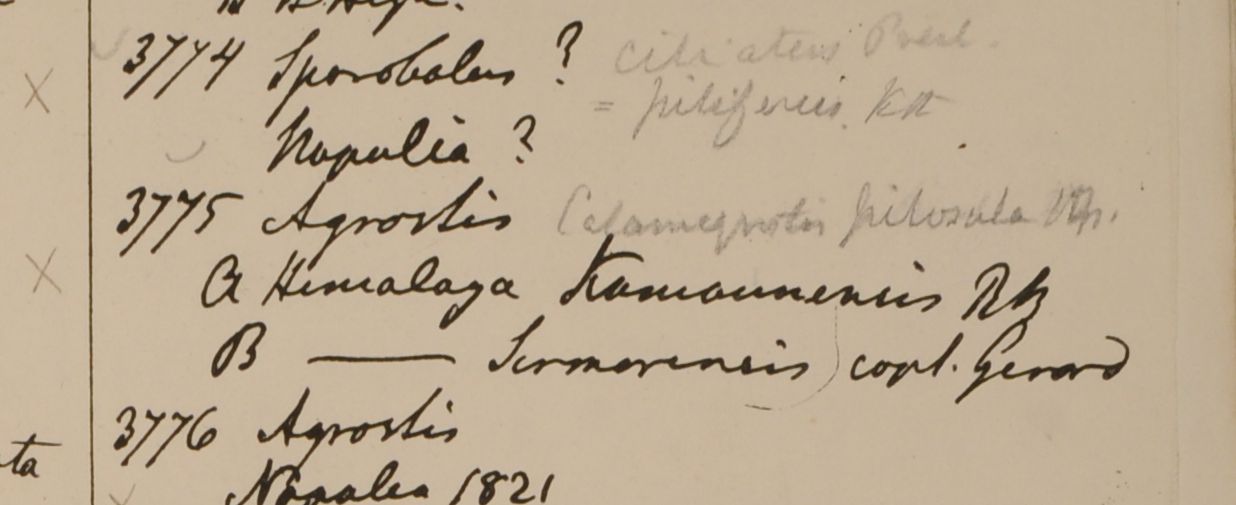 3774 Sporobolus ? ciliatus Presl.
= piliferus. Kth
Napalia ?
3775 Agrostis Calamagrostis pilosula Tr.
a Himalaya Kamaunensis RB
B — Sirmorensis capt. Gerard
ta
3776 Agrostis
Napalia 1821